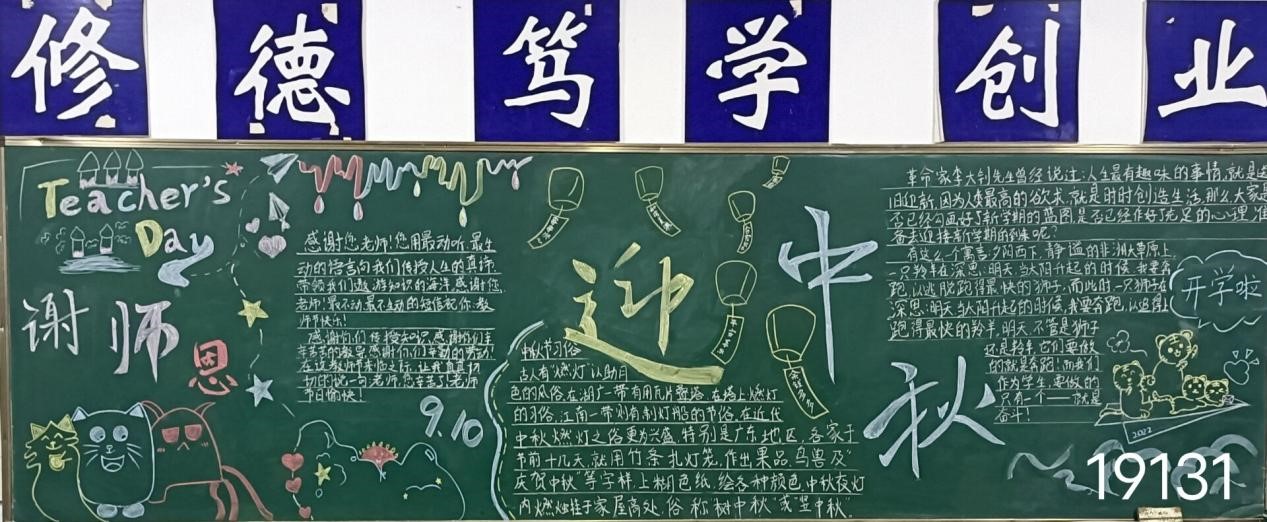 修德笃学创业
Teacher's
Day
谢师
恩
感谢您老师!您用最动听,最生
动的语言向我们传授人生的真谛
带领我们遨游知识的海洋,感谢您,
老师!最不动最不生动的短信祝你:教
师节快乐!
感谢你们传授去知识,感谢你们辛
辛苦苦的教导,感谢你们辛勤的劳动
在这教师节来临之际,让我们真切
切的说一句老师,您辛苦了老师
节日愉快!
9.10
迎中秋
中秋节习俗
古人有"燃灯"以助月
色的风俗,在湖广一带有用瓦片叠塔,在塔上燃灯
的习俗,江南一带则有制灯船的节俗,在近代
中秋燃灯之俗更为兴盛,特别是广东地区,各家于
节前十几天,就用竹条扎灯笼,作出果品,鸟兽及"
庆贺中秋"等字样,上糊色纸,绘各种颜色,中秋夜灯
内燃烛挂于家屋高处,俗称"树中秋"或"竖中秋".
革命家李大钊先生曾经说过:人生最有趣味的事情,就是送
旧迎新,因为人类最高的欲求,就是时时创造生活,那么,大家是
否已经勾画好了新学期的蓝图,是否已经作好充足的心理准
备去迎接新学期的到来呢?
有这么一个寓言:夕阳西下,静谧的非洲大草原上,
一只羚羊在深思:明天当太阳升起的时候,我要奔
跑,以逃脱跑得最快的狮子,而此时,一只狮子也
深思:明天当太阳升起的时候,我要奔跑,以追得上
跑得最快的羚羊,明天,不管是狮子
还是羚羊,它们要做
的就是奔跑!而我们
作为学生,要做的
只有一个——就是
奋斗!
开学啦
2022
19131